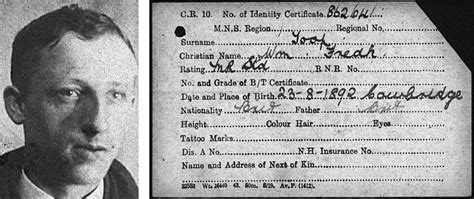 C.R. 10. No. of Identity Certificate. 862641
M.N.S. Region Regional No.
Surname Tool
Christian Name Wm Fredk
Rating R.N.R. No.
No. and Grade of B/T Certificate
Date and Place of Birth 23-8-1892 Cowbridge
Nationality Brit Father Brit
Height Colour Hair Eyes
Tattoo Marks
Dis. A No. N.H. Insurance No.
Name and Address of Next of Kin